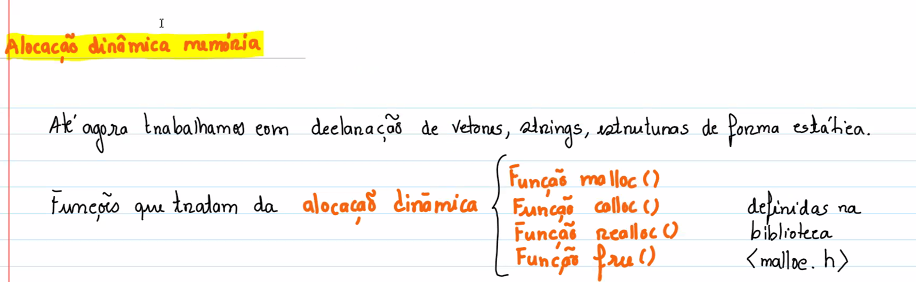 Alocação dinâmica memória
Até agora trabalhamos com declaração de vetores, strings, estruturas de forma estática.
Funções que tratam da alocação dinâmica
Função malloc()
Função calloc()
Função realloc()
Função free()
definidas na
biblioteca
<malloc.h>